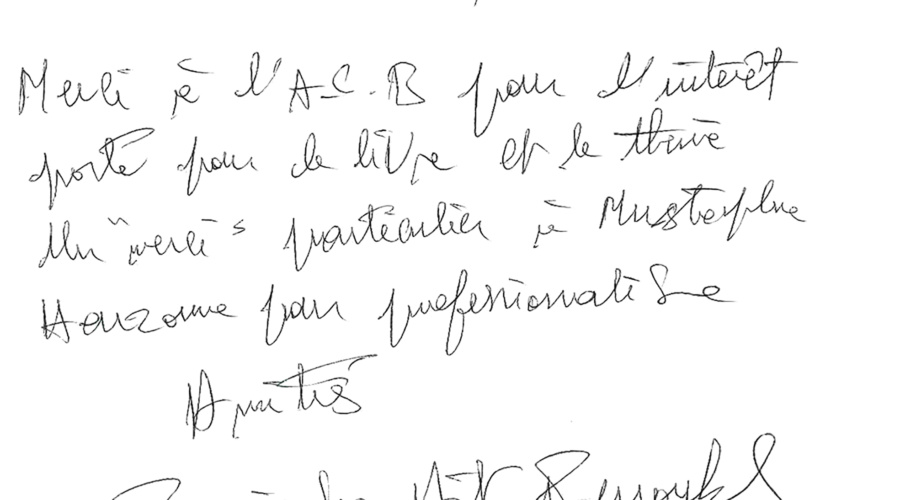 Merci à l'A.C.B pour l'intérêt
porté pour le livre et le thème
Un "merci" particulier à Mustapha
Harzoune pour professionnalisme
Amitiés